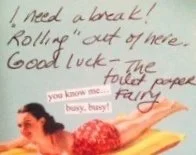 I need a break!
Rolling" out of here.
Good luck - The
toilet paper
Fairy
you know me...
busy, busy!